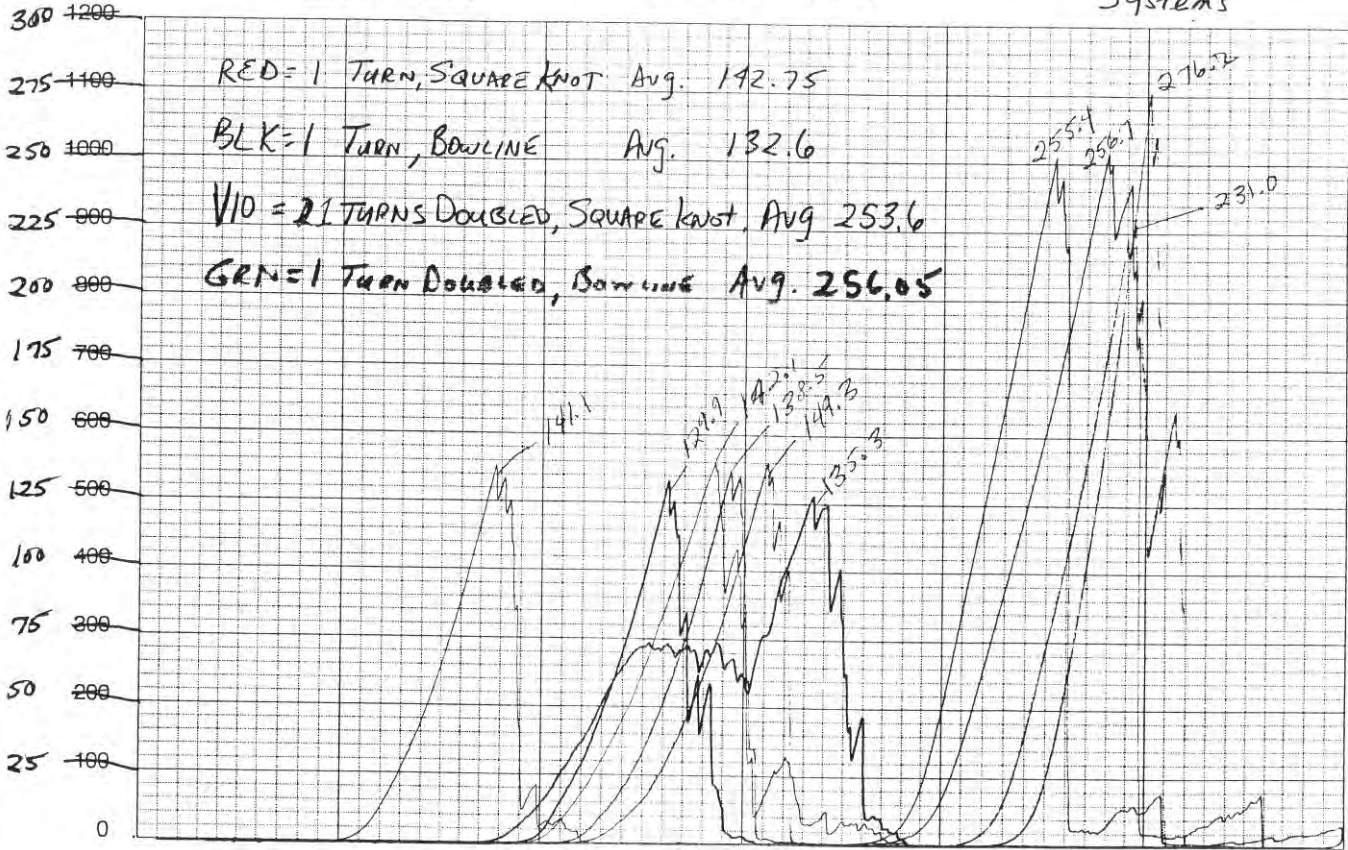 Systems
300 1200
275 1100
250 1000
225 900
200 800
175 700
150 600
125 500
100 400
75 300
50 200
25 100
0
RED = 1 TURN, SQUARE KNOT Avg. 142.75
BLK = 1 TURN, BOWLINE Avg. 132.6
VIO = 1 TURNS DOUBLED, SQUARE KNOT, Avg 253.6
GRN = 1 TURN DOUBLED, BOWLINE Avg. 256.05
141.1
129.9
142.1
138.5
149.3
135.3
255.4
256.7
276.2
231.0